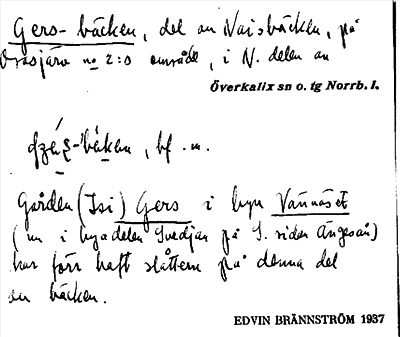 Gers-bäcken, del av Naisbäcken, på
Orasjärv no 2:s område, i N. delen av
Överkalix sn o. tg Norrb. l.
bf. m.
Gården (Isi) Gers i byn Vännäset
(nu i byadelen Svedjan på S. sidan Ängesån)
har förr haft slåttern på denna del
av bäcken.
EDVIN BRÄNNSTRÖM 1937